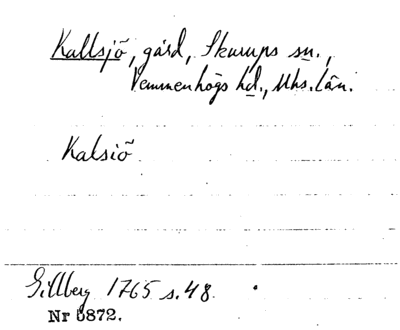 Kallsjö, gård, Skurups sn.,
Vemmenhögs hd., Mhs. län.
Kalsiö
Gillberg 1765 s. 48.
Nr 5872.